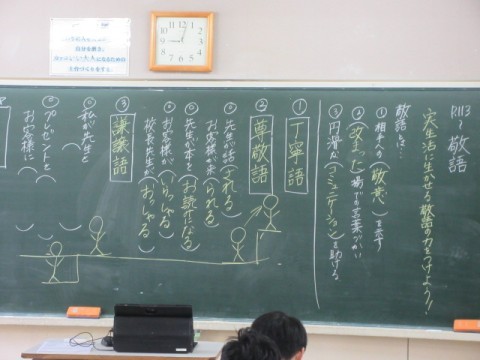 P.113～ 敬語
実生活に生かせる敬語の力をつけよう！
敬語は…
①相手への（敬意）を表す
②（改まった）場での言葉づかい
③円滑な（コミュニケーション）を助ける
① 丁寧語
② 尊敬語
先生が話（される）
お客様が来（られる）
先生が本を（お読みになる）
お客様が（いらっしゃる）
校長先生が（おっしゃる）
③ 謙譲語
私が先生を（ ）
お客様に（ ）
プレゼントを（ ）